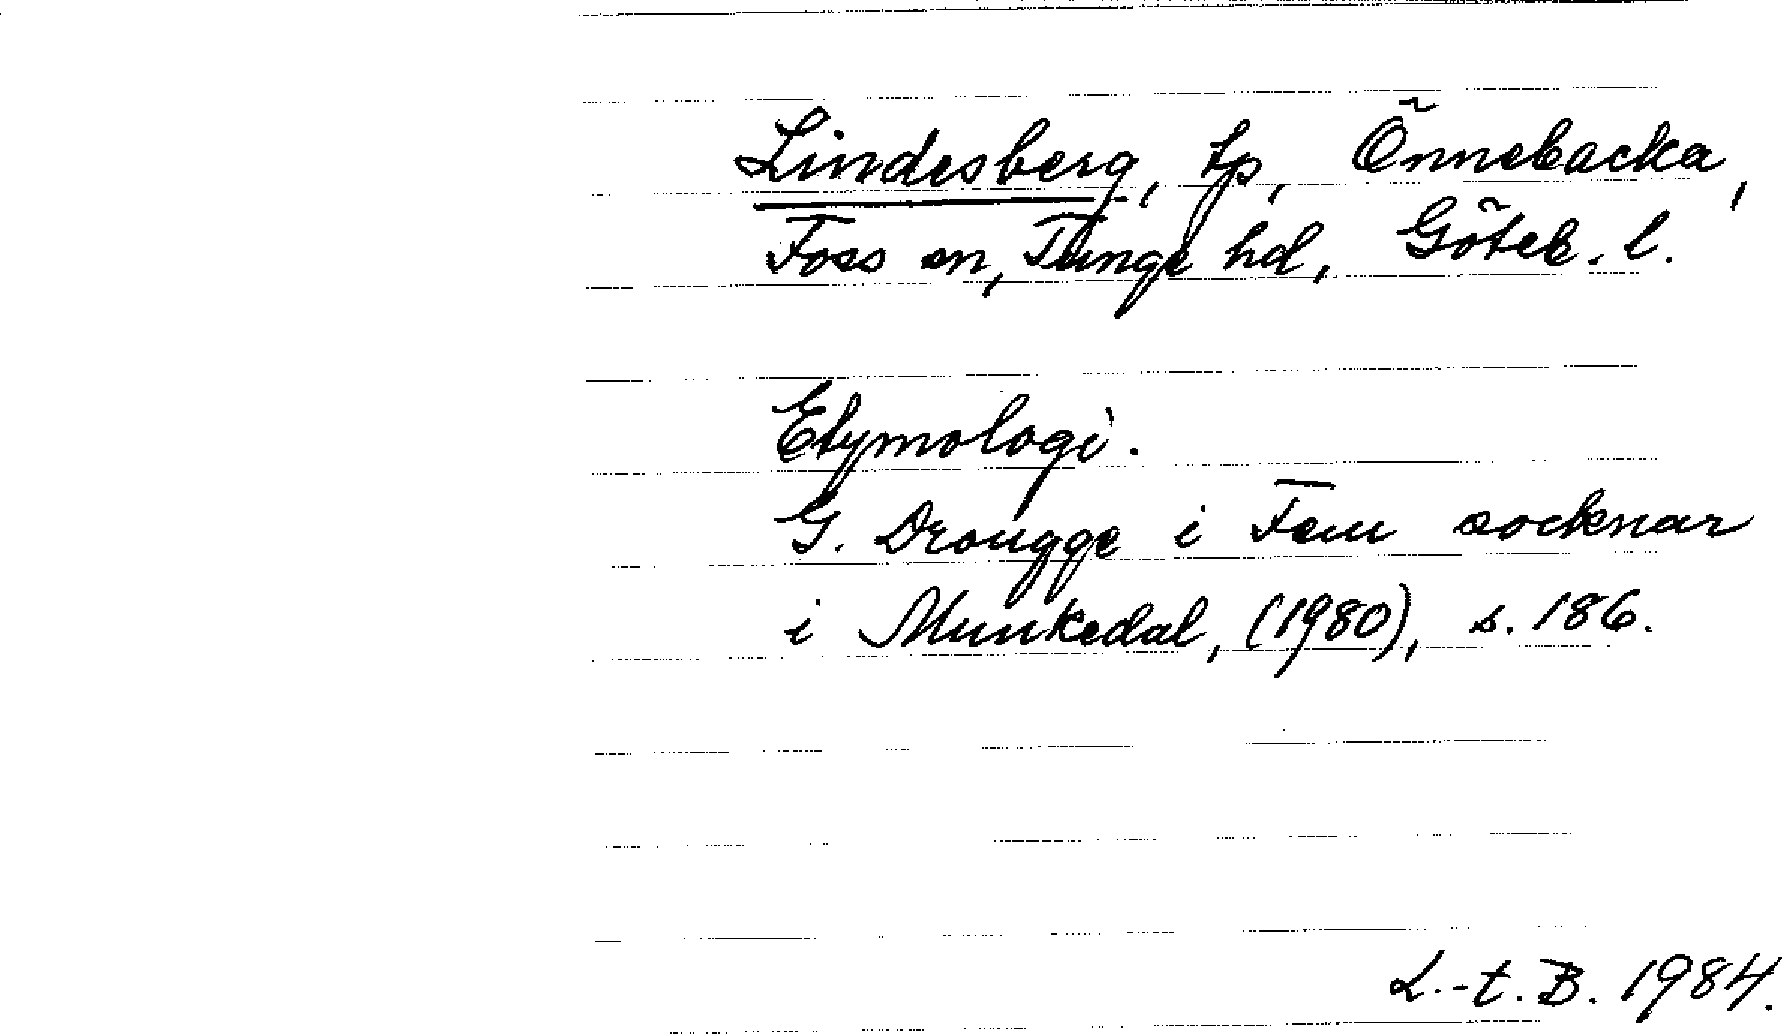 Lindesberg, tp, Önnebacka,
Foss sn, Tunge hd, Göteb. l.
Etymologi.
G. Drougge i Fem socknar
i Munkedal, (1980), s. 186.
L.-t. B. 1984.